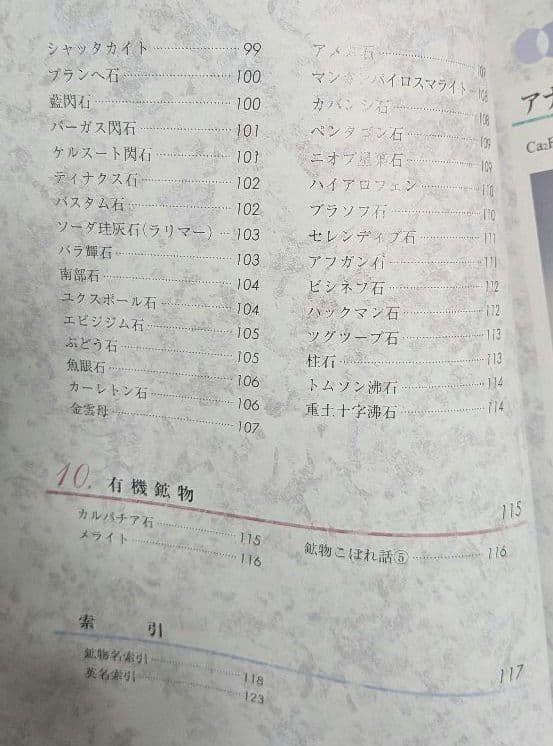 シャッタカイト 99
プランヘ石 100
藍閃石 100
パーガス閃石 101
ケルスート閃石 101
ティナクス石 102
バスタム石 102
ソーダ珪灰石(ラリマー) 103
バラ輝石 103
南部石 104
ユクスポール石 104
エピジジム石 105
ぶどう石 105
魚眼石 106
カーレトン石 106
金雲母 107
石 107
マンガンパイロスマライト 108
カバンシ石 108
ペンタゴン石 109
ニオブ 葉石 109
ハイアロフェン 110
ブラソフ石 110
セレンディブ石 111
アフガン石 111
ビシネブ石 112
ハックマン石 112
ツグツープ石 113
柱石 113
トムソン沸石 114
重土十字沸石 114
10. 有機鉱物 115
カルパチア石 115
メライト 116
鉱物こぼれ話⑤ 116
索引 117
鉱物名索引 118
英名索引 123
ア
Ca₂